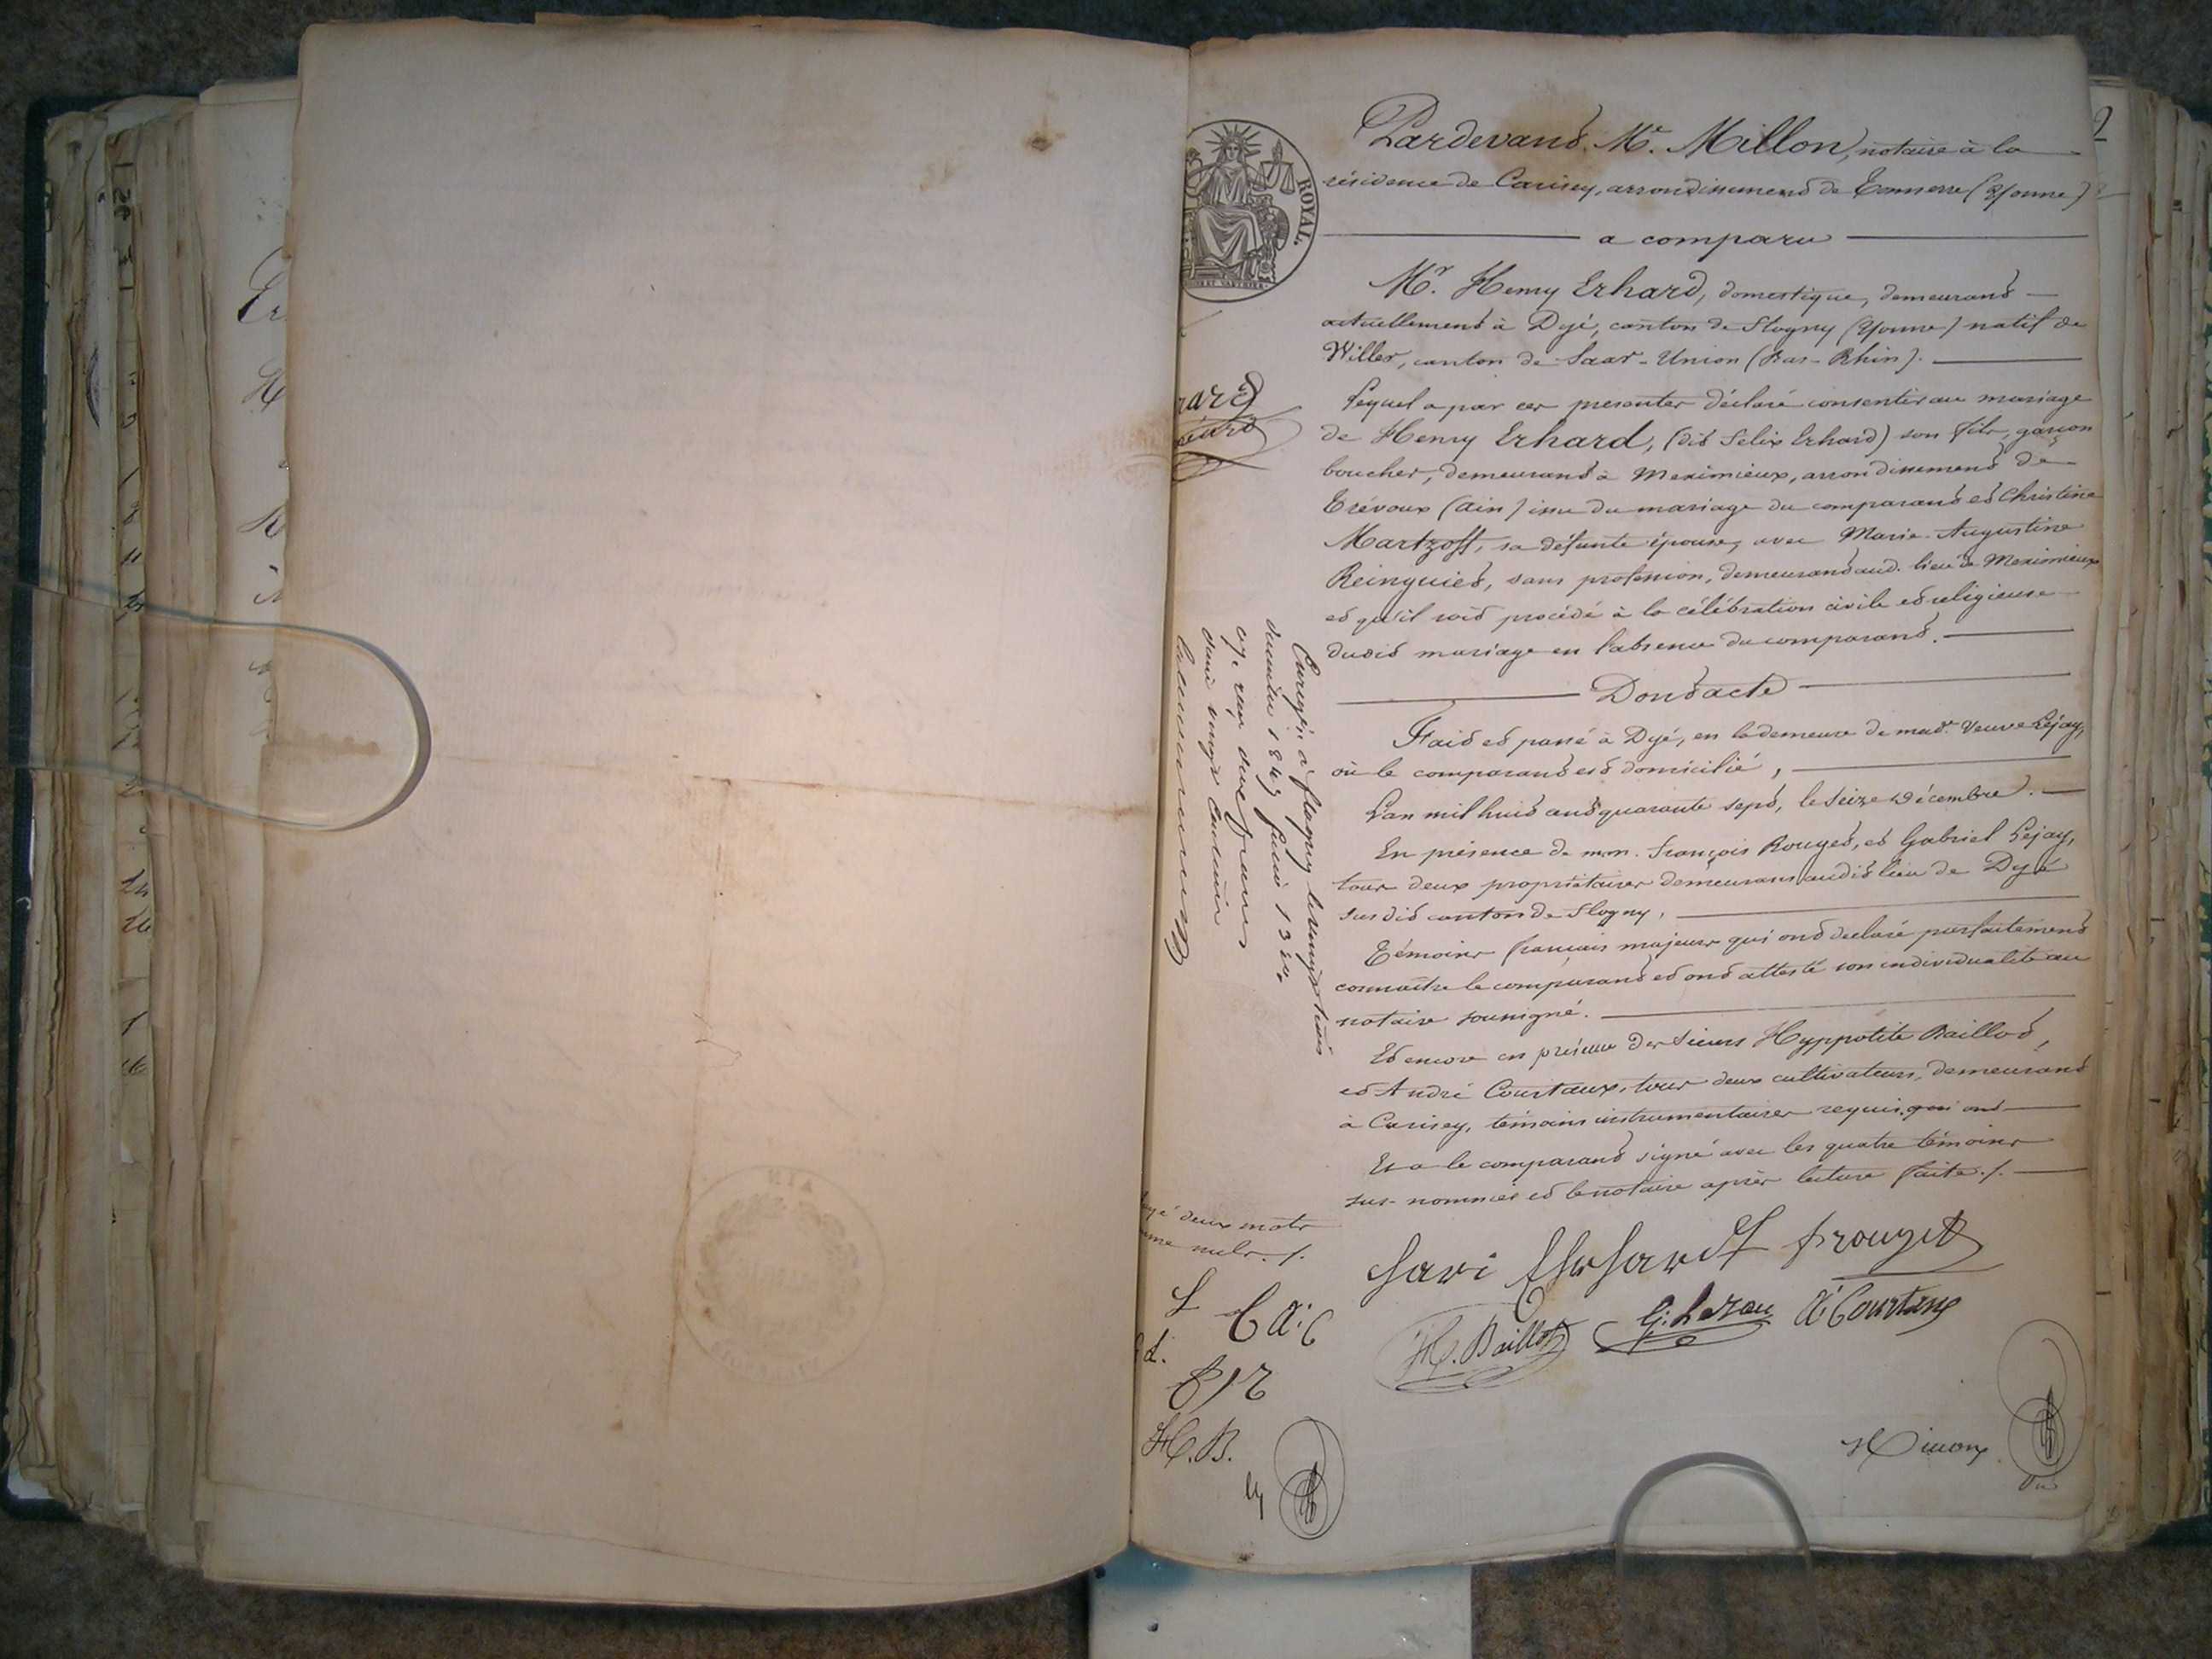 Pardevant Me. Millon, notaire à la
résidence de Carisey, arrondissement de Tonnerre (Yonne)
a comparu
Mr. Henry Erhard, domestique, demeurant
actuellement à Dyé, canton de Flogny (Yonne) natif de
Willer, canton de Saar-Union (Bas-Rhin).
Lequel a par ces présentes déclaré consentir au mariage
de Henry Erhard, (dit Felix Erhard) son fils, garçon
boucher, demeurant à Meximieux, arrondissement de
Trévoux (Ain) issu du mariage du comparant et Christine
Martzoff, sa défunte épouse, avec Marie-Augustine
Reinguiet, sans profession, demeurant aud. lieu de Meximieux
et qu'il soit procédé à la célébration civile et religieuse
dudit mariage en l'absence du comparant.
Dont acte
Fait et passé à Dyé, en la demeure de made. Veuve Lejay,
où le comparant est domicilié,
L'an mil huit cent quarante sept, le seize Décembre.
En présence de m.m. François Rouget, et Gabriel Lejay,
tous deux propriétaires demeurans audit lieu de Dyé
susdit canton de Flogny.
Témoins français majeurs qui ont déclaré parfaitement
connaître le comparant et ont attesté son individualité au
notaire soussigné.
Et encore en présence des sieurs Hyppolite Baillot,
et André Courtaux, tous deux cultivateurs, demeurant
à Carisey, témoins instrumentaires requis, qui ont
Et a le comparant signé avec les quatre témoins
sus-nommés et le notaire après lecture faite ./.
Hari Ehrhardt f rouget
H. Baillot G: Lezau A Courtaux
ROYAL.
Enregistré à flogny le vingt trois
décembre 1847 folio 132
reçu deux francs
vingt centimes
deux mots
nuls ./.
H.B.